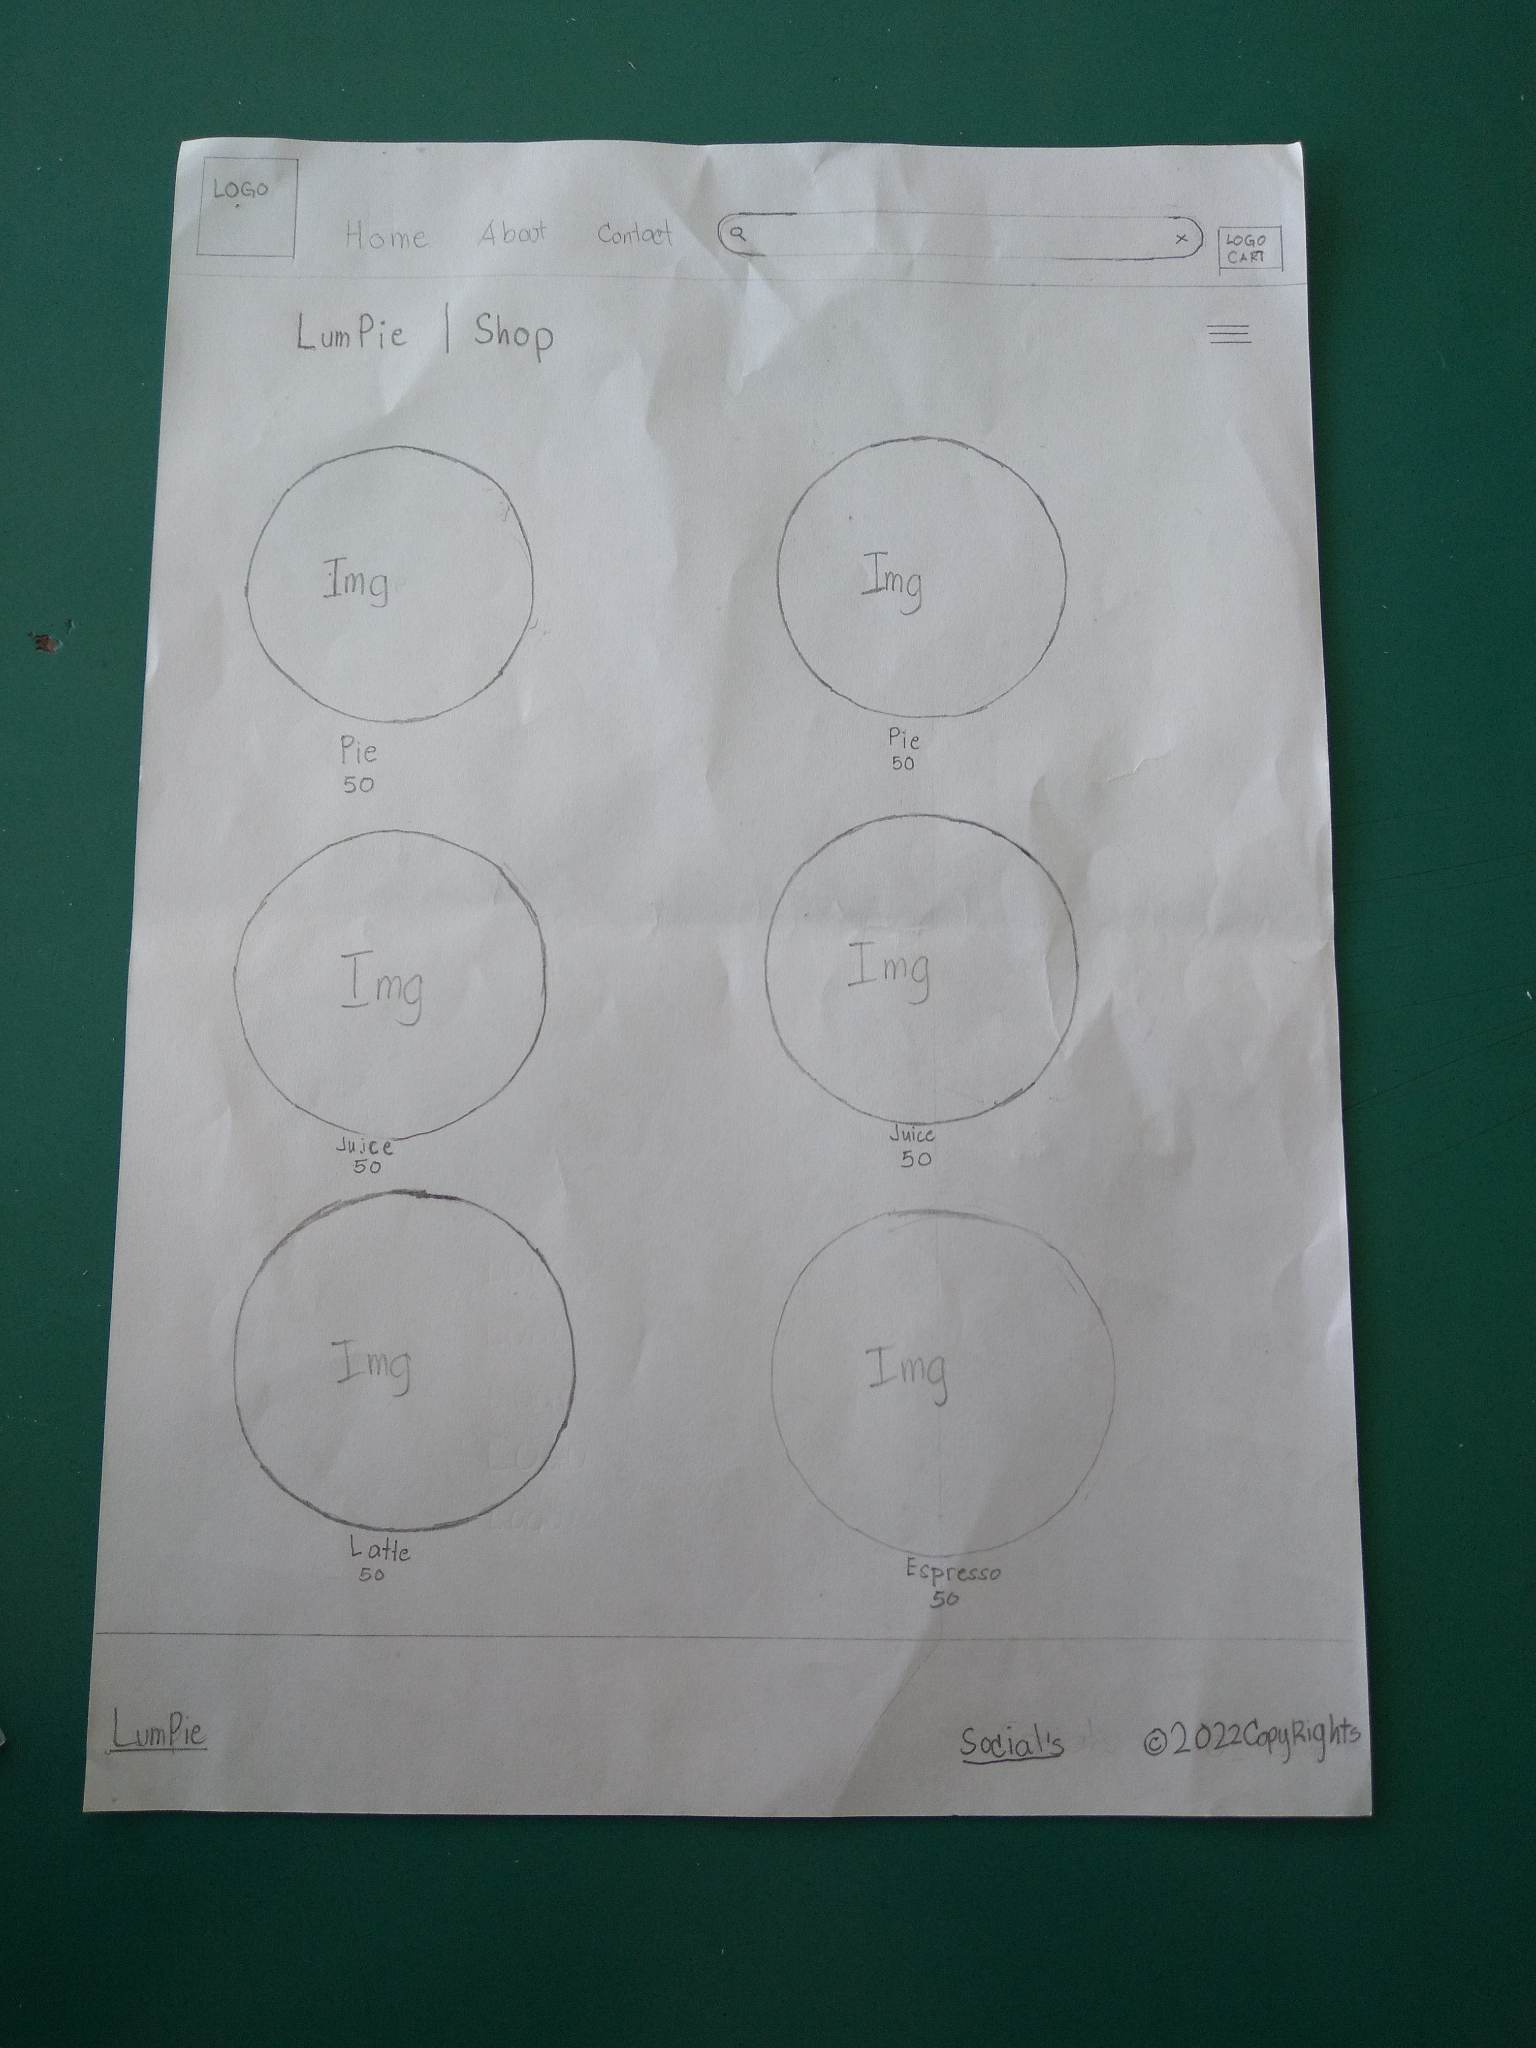 LOGO
Home About Contact
x
LOGO
CART
LumPie | Shop
Img
Img
Pie
50
Pie
50
Img
Img
Juice
50
Juice
50
Img
Img
Latte
50
Espresso
50
LumPie
Social's
©2022CopyRights